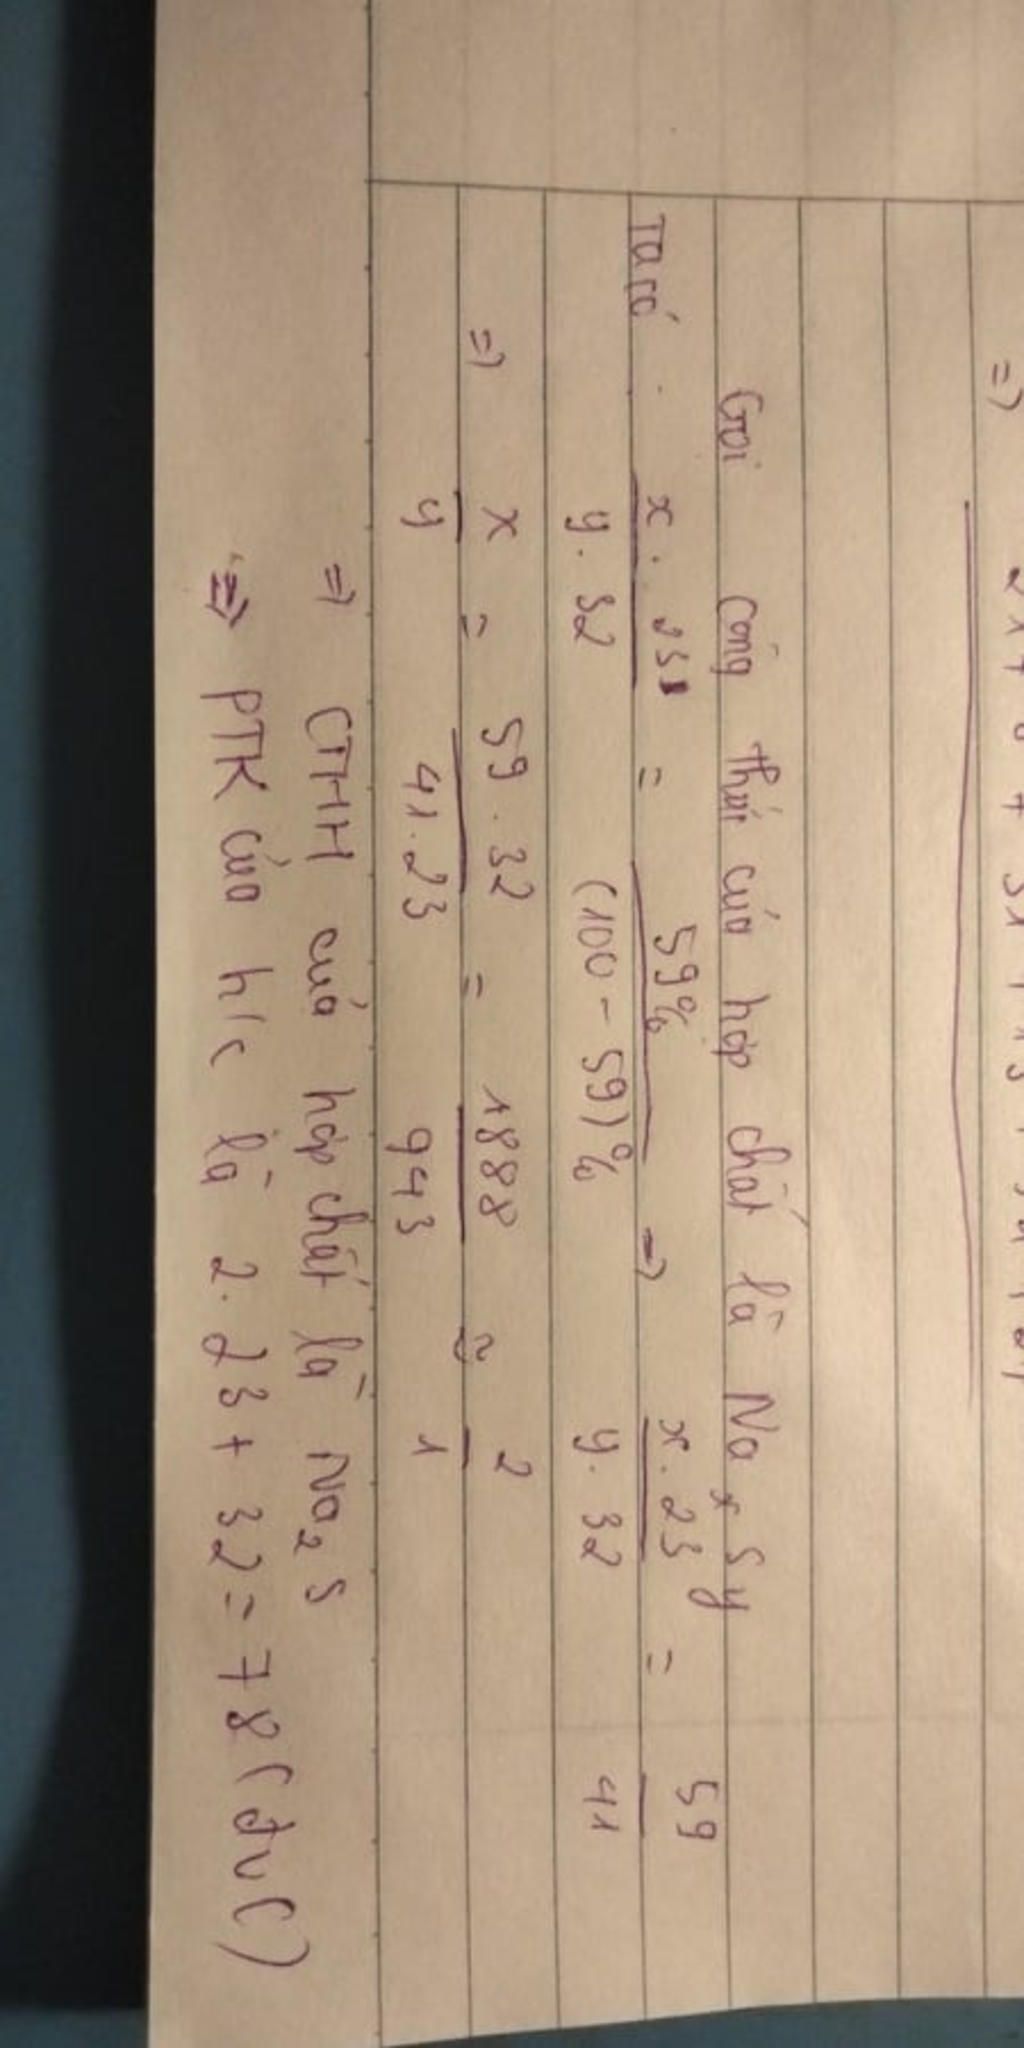 =>
Gọi công thức của hợp chất là NaxSy
Ta có x. 23 / y. 32 = 59% / (100 - 59)% => x. 23 / y. 32 = 59 / 41
=> x / y = 59. 32 / 41. 23 = 1888 / 943 ≈ 2 / 1
=> CTHH của hợp chất là Na2S
=> PTK của h/c là 2. 23 + 32 = 78 (đvC)